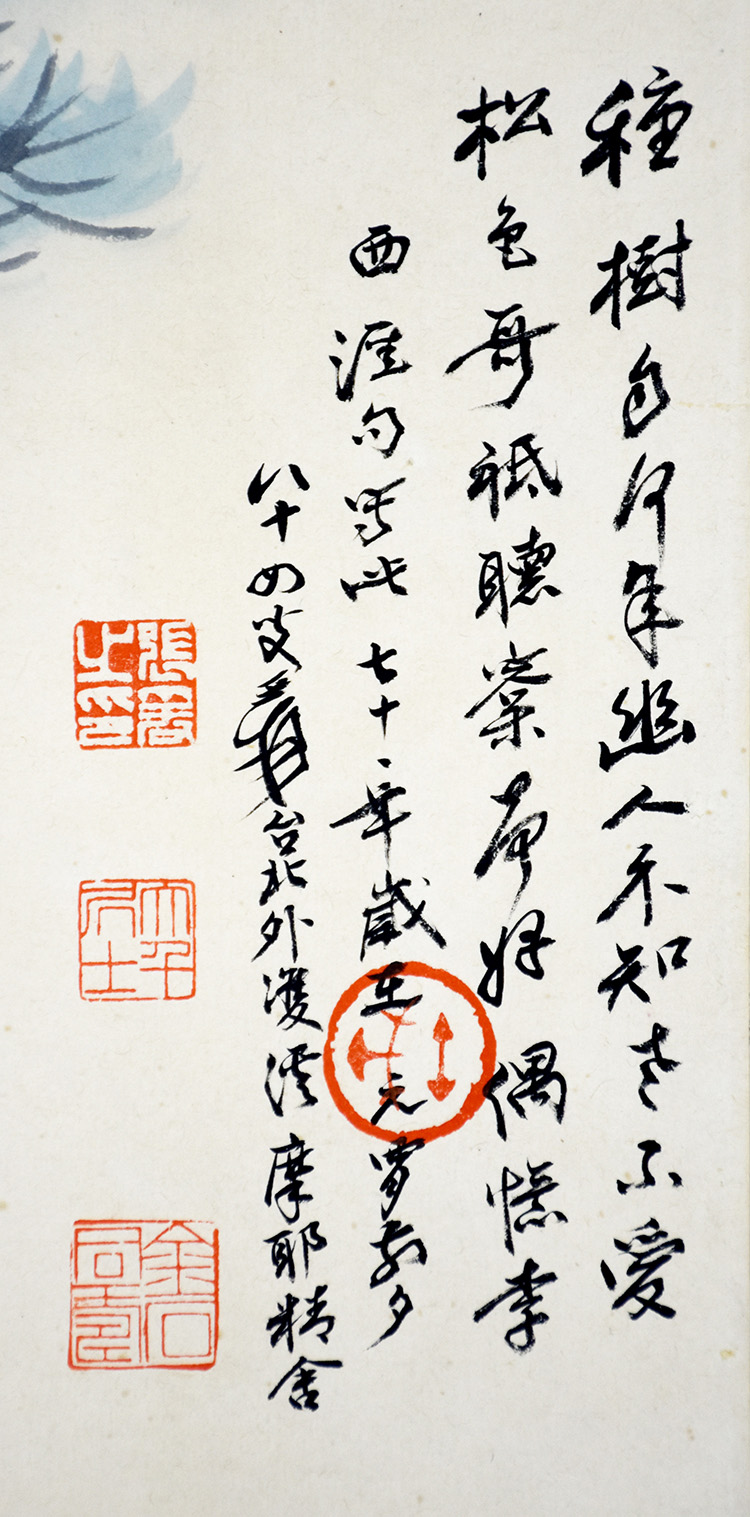 種樹自何年幽人不知老不愛
松色奇祗聽㮤聲好偶憶李
西涯句寫此七十一年歲在元宵前夕
八十四叟爰台北外雙溪摩耶精舍
張爰之印
大千居士
金石同壽